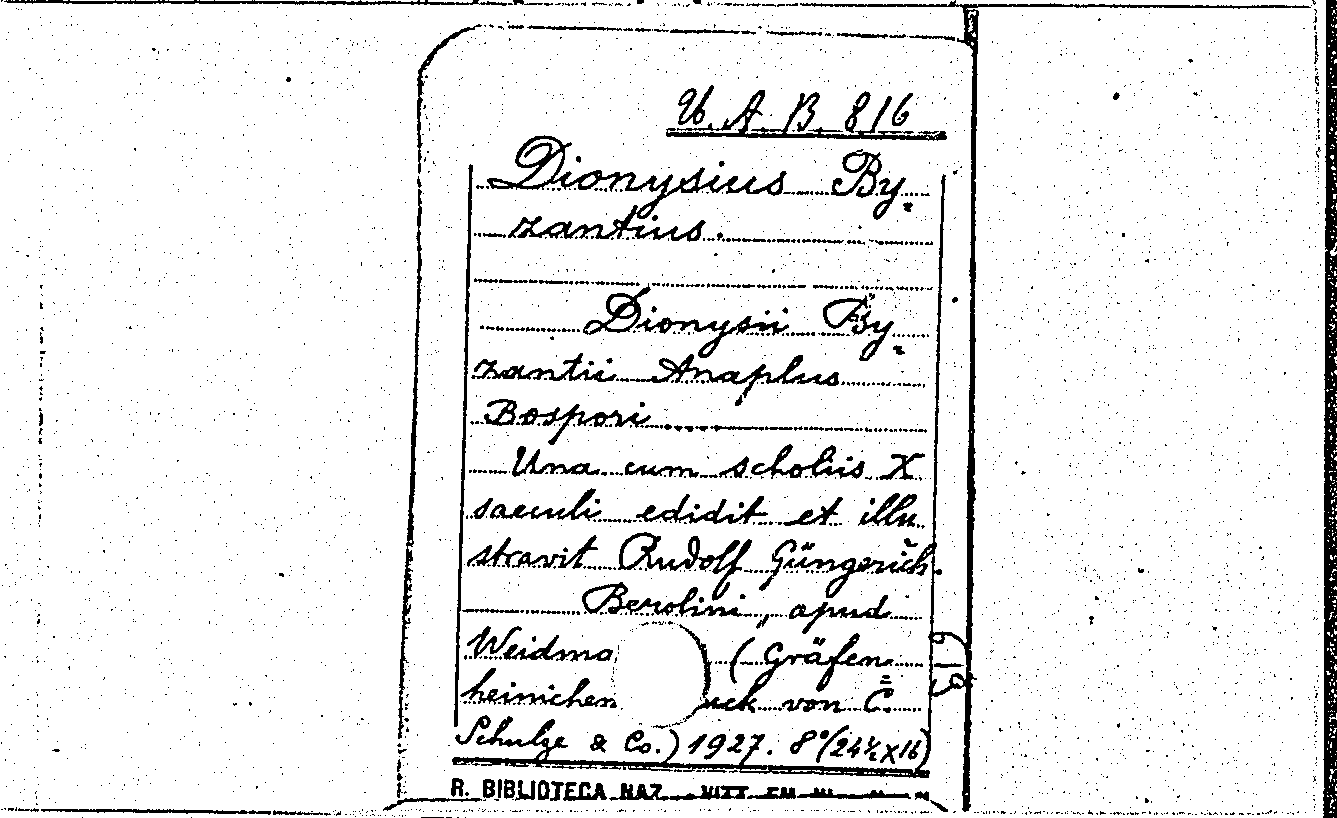 U. A. B. 816
Dionysius By-
zantius.
Dionysii By-
zantii Anaplus
Bospori .....
Una cum scholiis X
saeculi edidit et illu
stravit Rudolf Güngerich.
Berolini, apud
Weidma ( Gräfen-
heinichen uck von C.
Schulze & Co.) 1927. 8° (24½ x 16)
619
R. BIBLIOTECA NAZ. VITT. EM.